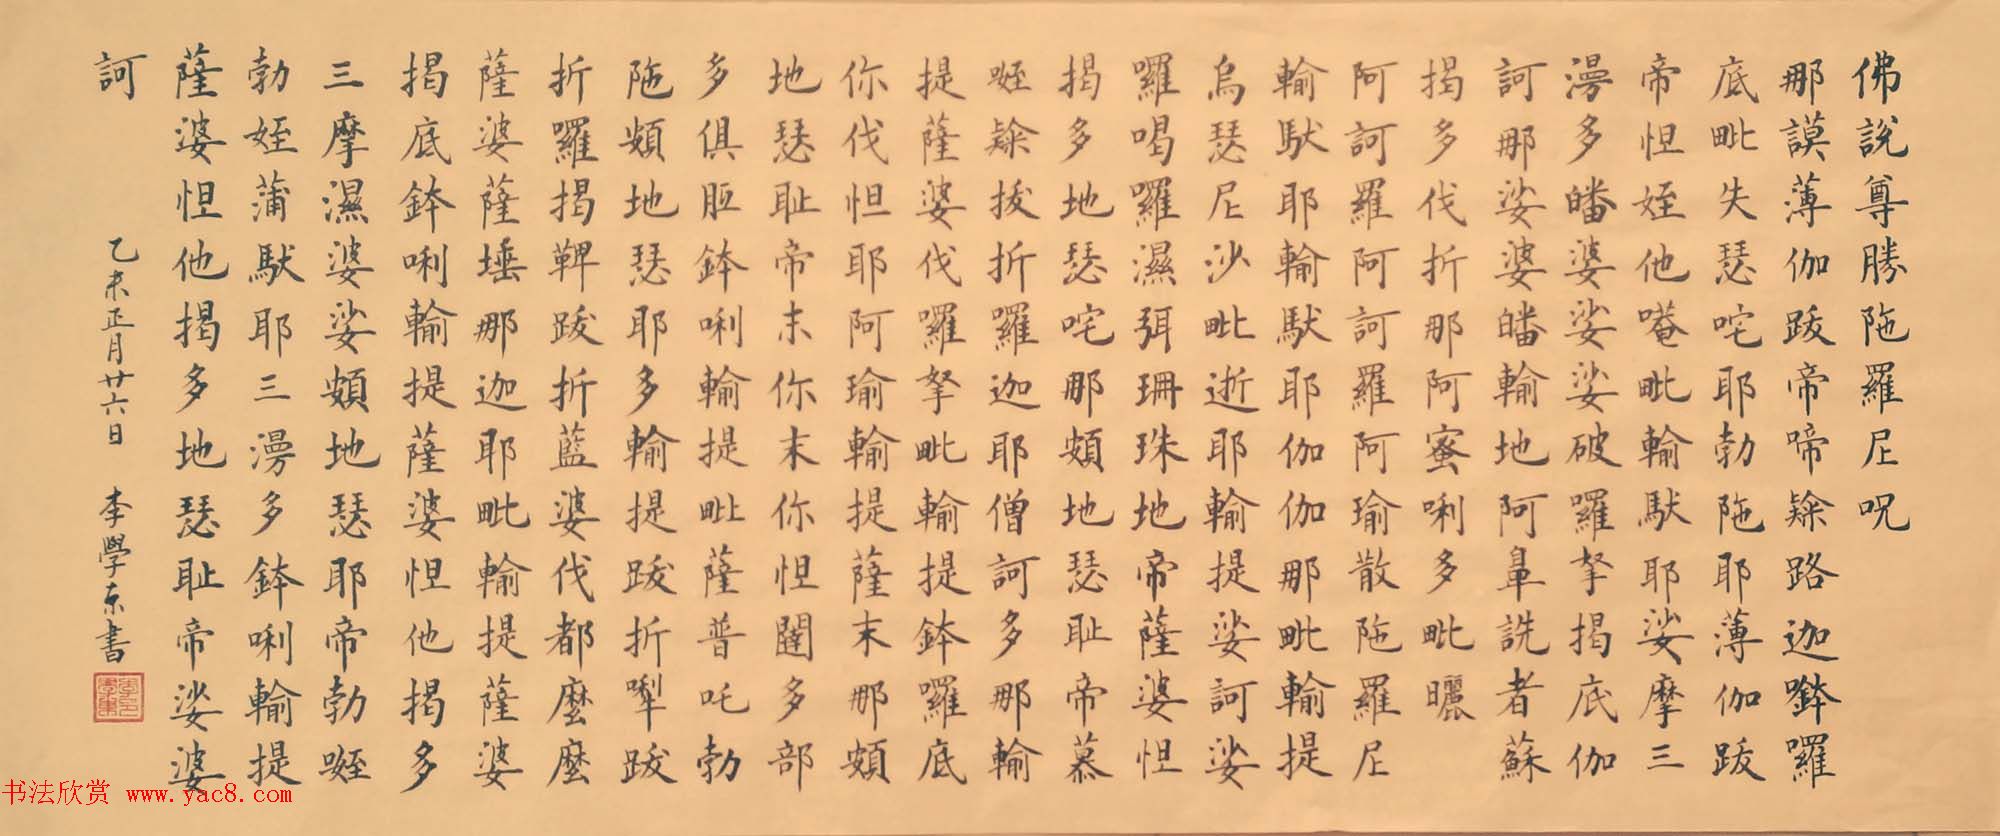 佛說尊勝陁羅尼呪
那謨薄伽跋帝啼隸路迦鉢囉
底毗失瑟咤耶勃陁耶薄伽跋
帝怛姪他唵毗輸馱耶娑摩三
漫多皤婆娑娑破羅拏揭底伽
訶那娑婆皤輸地阿鼻詵者蘇
揭多伐折那阿蜜唎多毗曬
阿訶羅阿訶羅阿瑜散陁羅尼
輸馱耶輸馱耶伽伽那毗輸提
烏瑟尼沙毗逝耶輸提娑訶娑
囉喝囉濕弭珊珠地帝薩婆怛
揭多地瑟咤那頞地瑟耻帝慕
姪隸拔折羅迦耶僧訶多那輸
提薩婆伐囉拏毗輸提鉢囉底
你伐怛耶阿瑜輸提薩末那頞
地瑟耻帝末你末你怛闥多部
多俱胝鉢唎輸提毗薩普吒勃
陁頞地瑟耶多輸提跋折犁跋
折囉揭鞞跋折藍婆伐都麼麼
薩婆薩埵那迦耶毗輸提薩婆
揭底鉢唎輸提薩婆怛他揭多
三摩濕婆娑頞地瑟耶帝勃姪
勃姪蒲馱耶三漫多鉢唎輸提
薩婆怛他揭多地瑟耻帝娑婆
訶
乙未正月廿六日 李學東書
书法欣赏 www.yac8.com